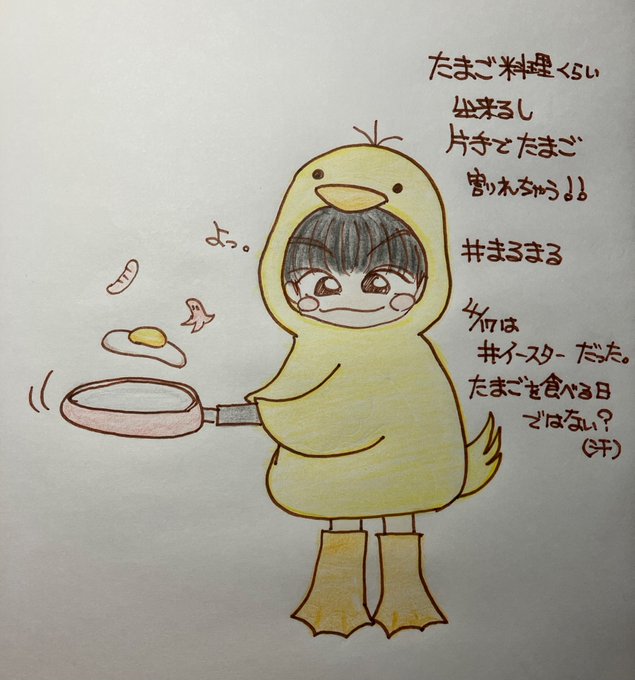 たまご料理くらい
出来るし
片手でたまご
割れちゃう!!
よっ。
#まるまる
4/17は
#イースターだった。
たまごを食べる日
ではない?
(汗)